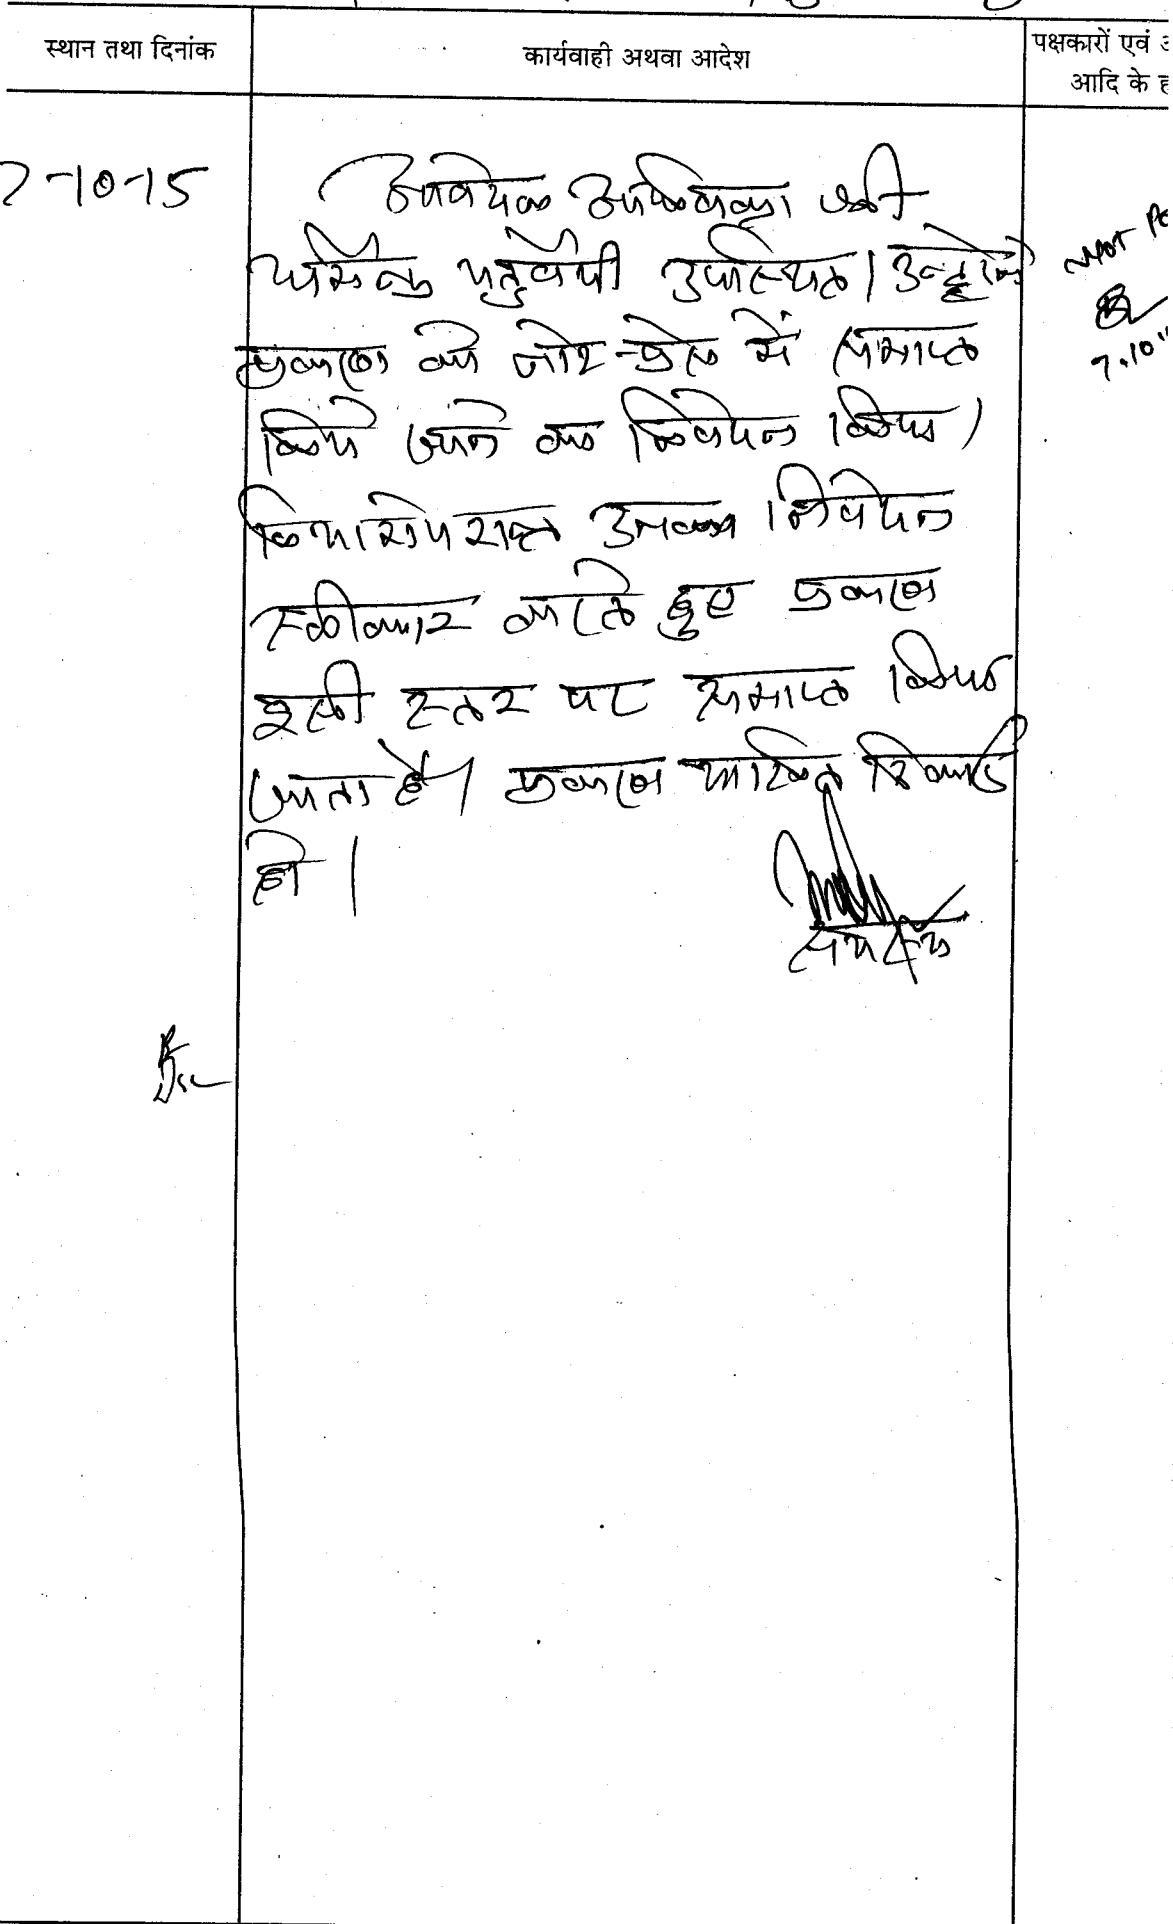 स्थान तथा दिनांक
कार्यवाही अथवा आदेश
पक्षकारों एवं
आदि के
7-10-15
आवेदक अभिभाषक श्री
धर्मेन्द्र चतुर्वेदी उपस्थित। उन्होंने
प्रकरण को नोट-प्रेस में समाप्त
किये जाने का निवेदन किया।
विचारोपरान्त उनका निवेदन
स्वीकार करते हुए प्रकरण
इसी स्तर पर समाप्त किया
जाता है। प्रकरण दाखिल रिकार्ड
हो।
सदस्य
NOT
7.10